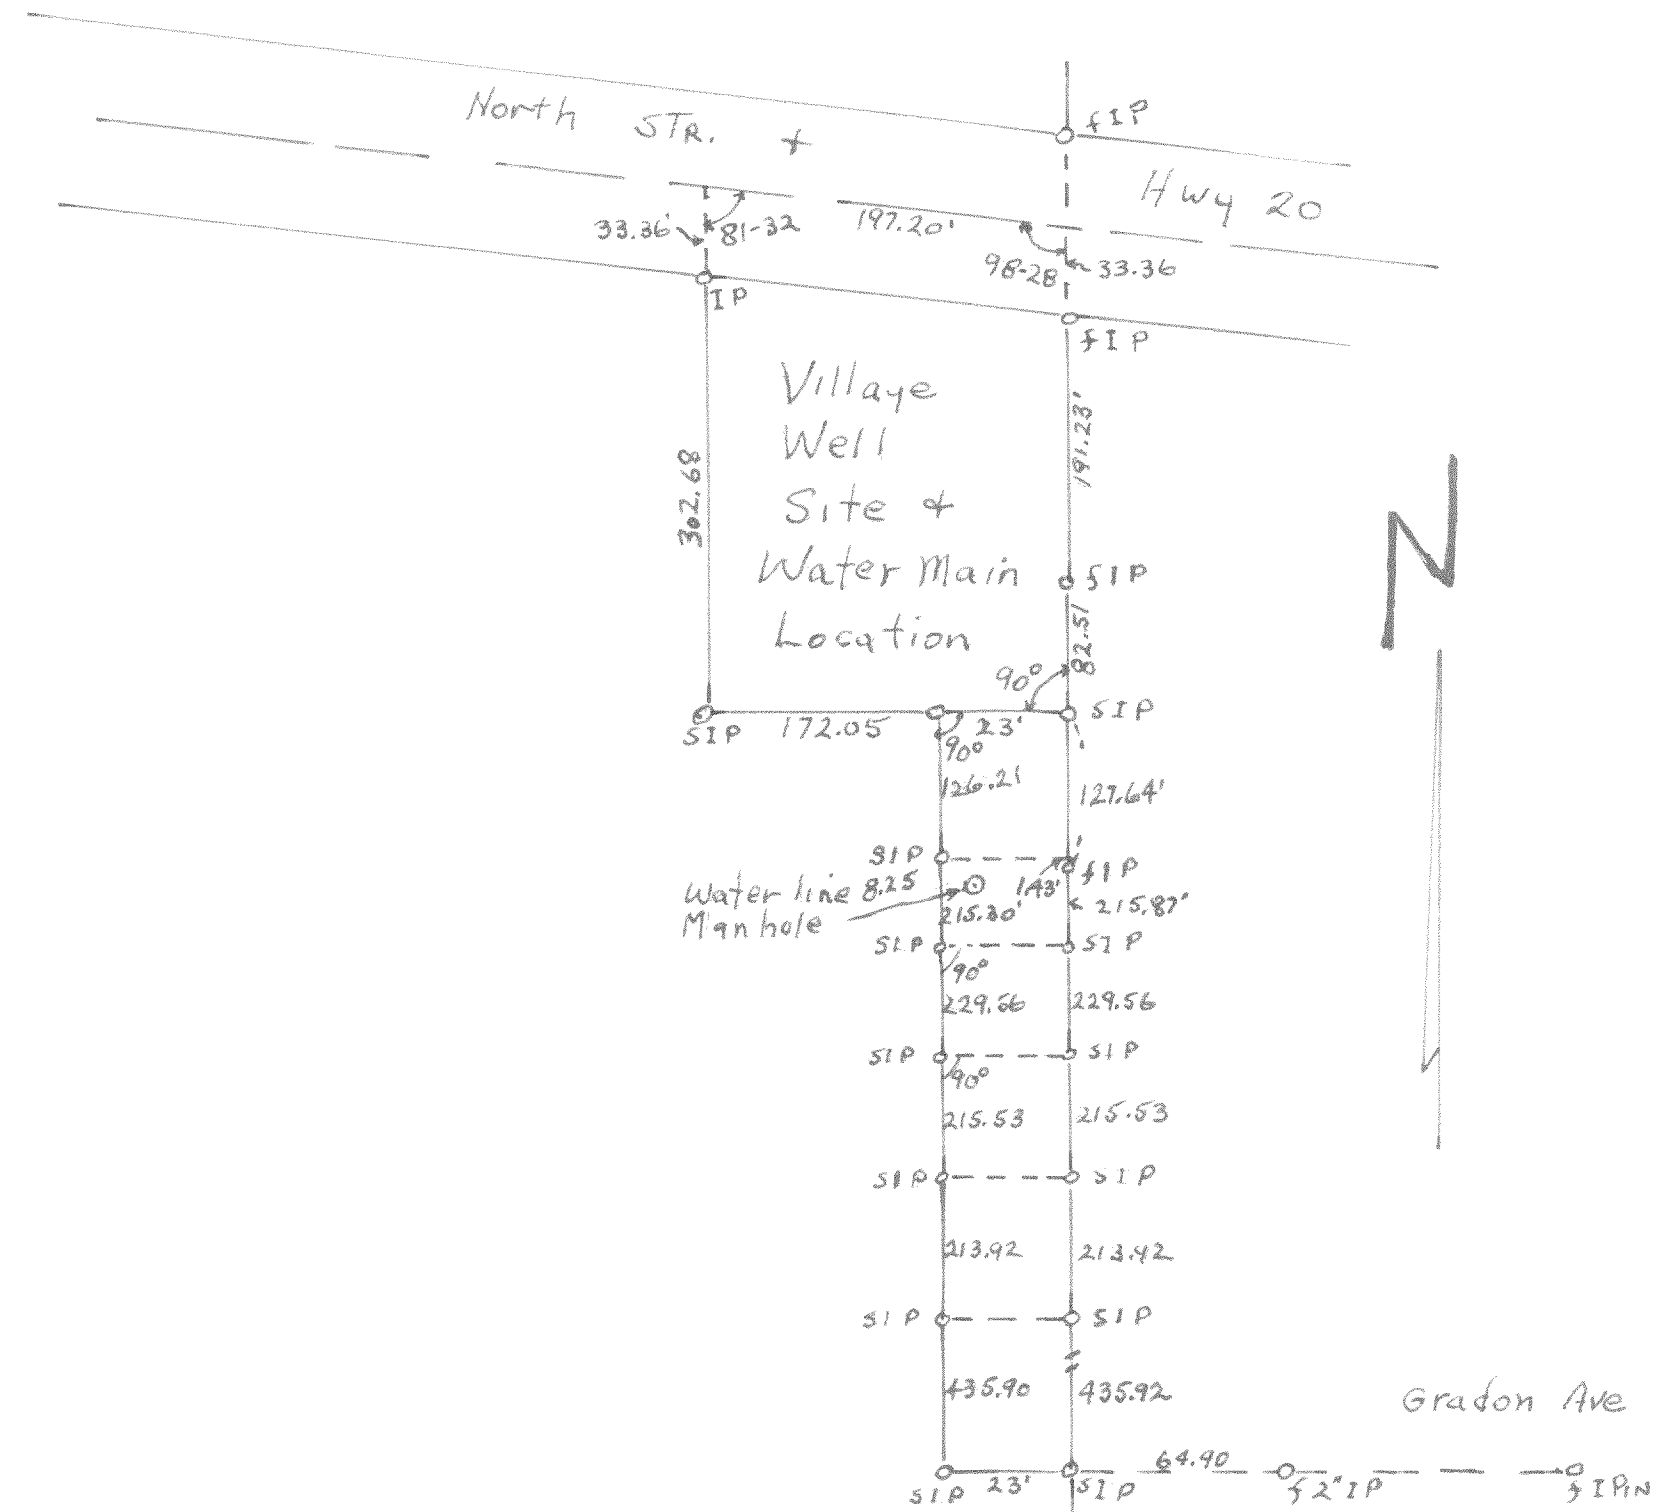 North STR. +
Hwy 20
fIP
33.36'
81-32
197.20'
98-28
33.36
IP
fIP
Village
Well
Site +
Water Main
Location
302.68
191.23'
fIP
82.51
90°
SIP
SIP
172.05
23'
90°
126.21
127.64'
SIP
fIP
1.43'
Water line 8.25
Manhole
215.30'
215.87'
SIP
SIP
90°
229.56
229.56
SIP
SIP
90°
215.53
215.53
SIP
SIP
213.92
213.92
SIP
SIP
435.90
435.92
Gradon Ave
64.90
SIP
23'
SIP
f2"IP
f IPIN
N